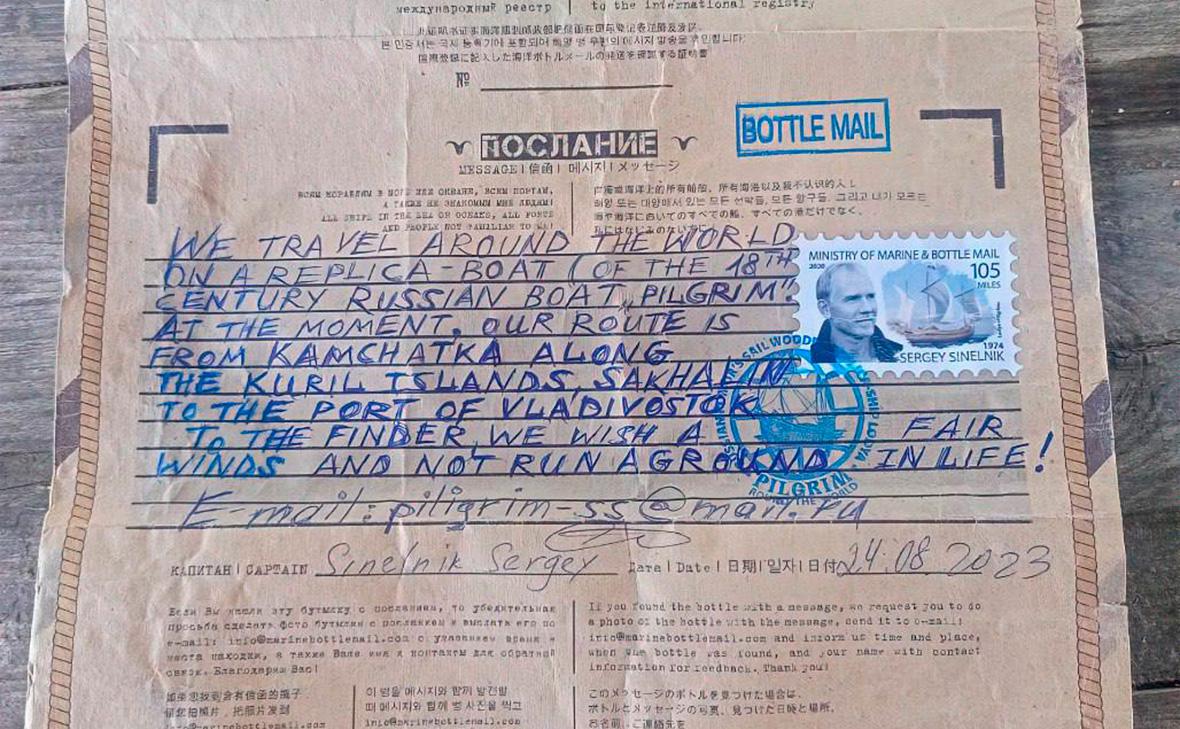 международный реестр
to the international registry
№
BOTTLE MAIL
ПОСЛАНИЕ
MESSAGE | 信函 | 메시지 | メッセージ
ВСЕМ КОРАБЛЯМ В МОРЕ ИЛИ ОКЕАНЕ, ВСЕМ ПОРТАМ,
А ТАКЖЕ НЕ ЗНАКОМЫМ МНЕ ЛЮДЯМ!
ALL SHIPS IN THE SEA OR OCEANS, ALL PORTS
AND PEOPLE NOT FAMILIAR TO ME!
WE TRAVEL AROUND THE WORLD
ON A REPLICA-BOAT (OF THE 18TH
CENTURY RUSSIAN BOAT „PILGRIM"
AT THE MOMENT, OUR ROUTE IS
FROM KAMCHATKA ALONG
THE KURIL ISLANDS, SAKHALIN
TO THE PORT OF VLADIVOSTOK
TO THE FINDER, WE WISH A FAIR
WINDS AND NOT RUN AGROUND IN LIFE!
E-mail: piligrim-ss@mail.ru
MINISTRY OF MARINE & BOTTLE MAIL
2020
105
MILES
1974
SERGEY SINELNIK
PILGRIM
ROUND THE WORLD
КАПИТАН | CAPTAIN Sinelnik Sergey Дата | Date | 日期 | 일자 | 日付 24.08 2023
Если Вы нашли эту бутылку с посланием, то убедительная
просьба сделать фото бутылки с посланием и выслать его по
e-mail: info@marinebottlemail.com с указанием время и
места находки, а также Ваше имя и контакты для обратной
связи. Благодарим Вас!
If you found the bottle with a message, we request you to do
a photo of the bottle with the message, send it to e-mail:
info@marinebottlemail.com and inform us time and place,
when the bottle was found, and your name with contact
information for feedback. Thank you!
如果您找到含有信函的瓶子
请您拍照片，把照片发到
info@marinebottlemail.com
이 병을 메시지와 함께 발견할
때 메시지와 함께 병 사진을 찍고
info@marinebottlemail.com
このメッセージのボトルを見つけた場合は、
ボトルとメッセージの写真、見つけた日時と場所、
お名前、ご連絡先を